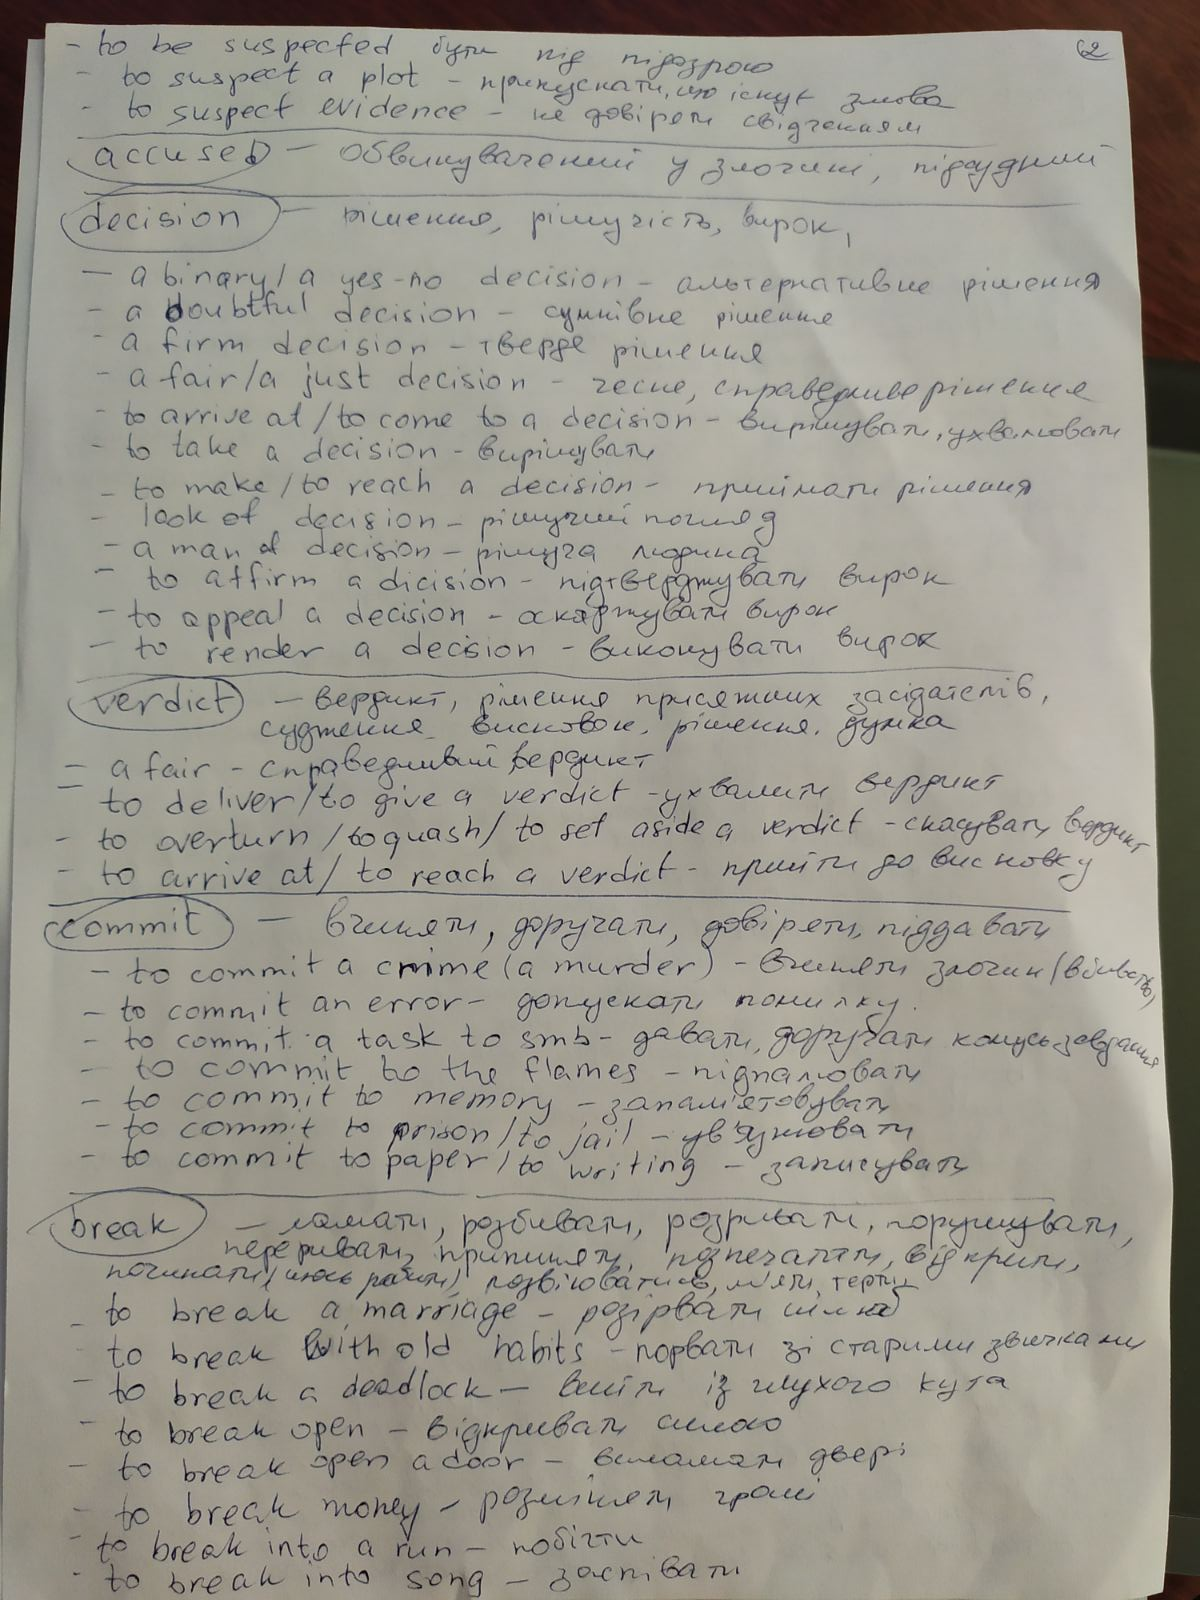 62
- to be suspected бути під підозрою
- to suspect a plot - припускати, що існує змова
- to suspect evidence - не довіряти свідченням
accused - обвинувачений у злочині, підсудний
decision - рішення, рішучість, вирок,
- a binary/a yes-no decision - альтернативне рішення
- a doubtful decision - сумнівне рішення
- a firm decision - тверде рішення
- a fair/a just decision - чесне, справедливе рішення
- to arrive at/to come to a decision - вирішувати, ухвалювати
- to take a decision - вирішувати
- to make/to reach a decision - приймати рішення
- look of decision - рішучий погляд
- a man of decision - рішуча людина
- to affirm a dicision - підтверджувати вирок
- to appeal a decision - оскаржувати вирок
- to render a decision - виконувати вирок
verdict - вердикт, рішення присяжних засідателів,
судження, висновок, рішення, думка
- a fair - справедливий вердикт
- to deliver/to give a verdict - ухвалити вердикт
- to overturn/to quash/to set aside a verdict - скасувати вердикт
- to arrive at/to reach a verdict - прийти до висновку
commit - вчиняти, доручати, довіряти, піддавати
- to commit a crime (a murder) - вчиняти злочин (вбивство)
- to commit an error - допускати помилку.
- to commit a task to smb - давати, доручати комусь завдання
- to commit to the flames - підпалювати
- to commit to memory - запам'ятовувати
- to commit to prison/to jail - ув'язнювати
- to commit to paper/to writing - записувати
break - ламати, розбивати, розривати, порушувати,
переривати, припиняти, розпечатати, відкрити,
починати (якусь роботу), розвіюватись, м'яти, терти
- to break a marriage - розірвати шлюб
- to break with old habits - порвати зі старими звичками
- to break a deadlock - вийти із глухого кута
- to break open - відкривати силою
- to break open a door - виламати двері
- to break money - розміняти гроші
- to break into a run - побігти
- to break into song - заспівати